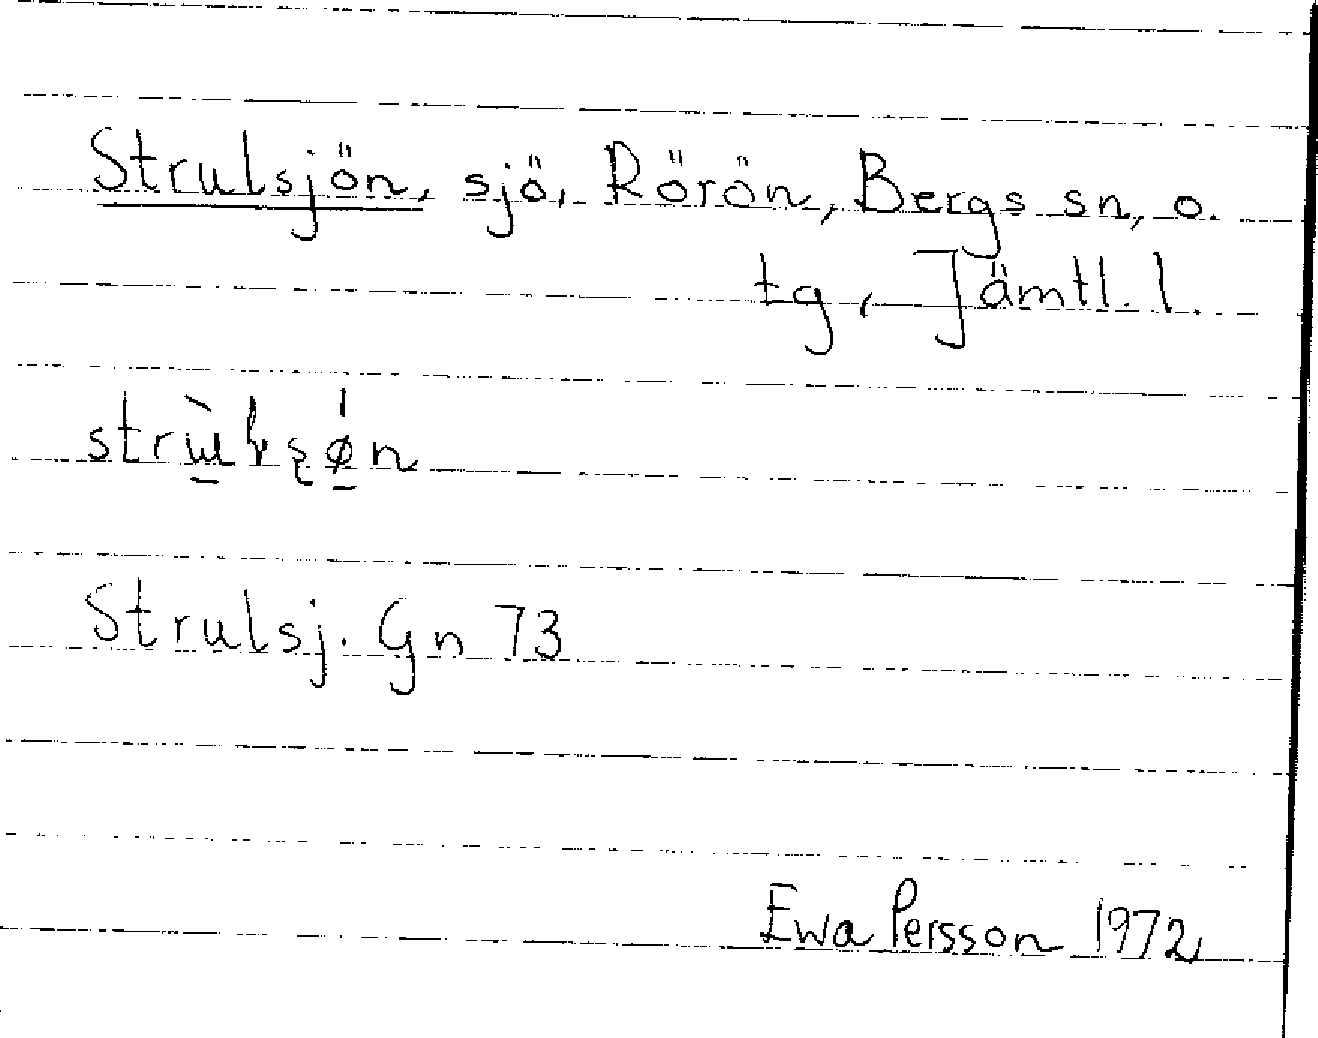 Strulsjön, sjö, Rörön, Bergs sn, o.
tg, Jämtl. l.
Strulsj. Gn 73
Ewa Persson 1972